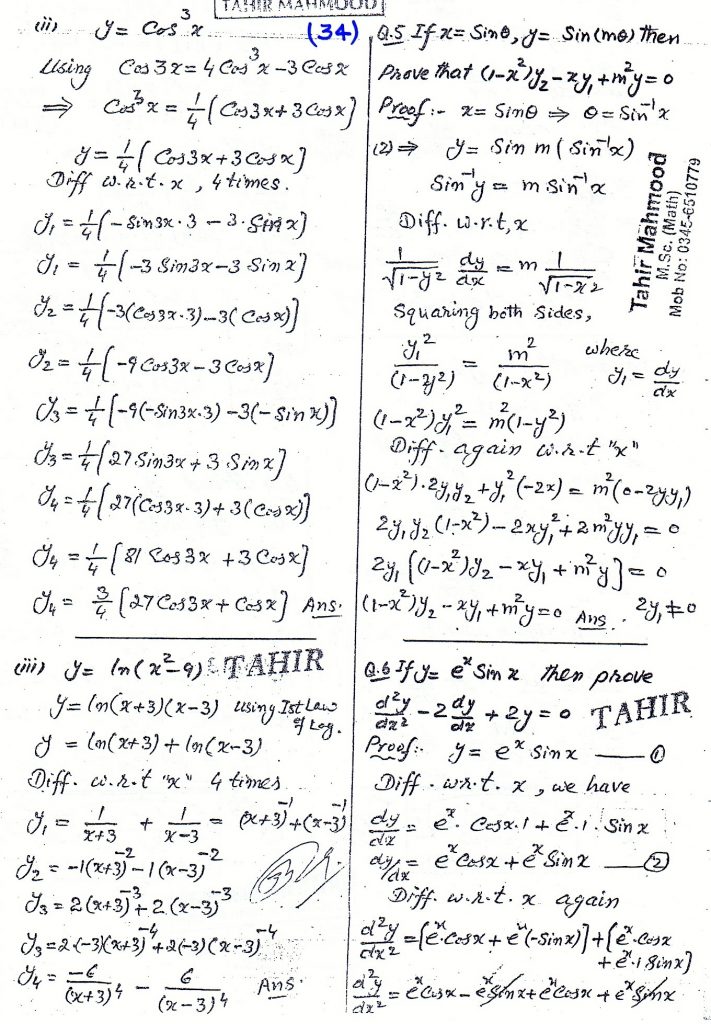 TAHIR MAHMOOD
(34)
(ii) y = Cos³x
Using Cos3x = 4Cos³x - 3Cosx
⇒ Cos³x = 1/4 [Cos3x + 3Cosx]
y = 1/4 [Cos3x + 3Cosx]
Diff w.r.t. x , 4 times.
y₁ = 1/4 [-Sin3x·3 - 3·Sinx]
y₁ = 1/4 [-3 Sin3x - 3 Sinx]
y₂ = 1/4 [-3(Cos3x·3) - 3(Cosx)]
y₂ = 1/4 [-9Cos3x - 3Cosx]
y₃ = 1/4 [-9(-Sin3x·3) - 3(-Sinx)]
y₃ = 1/4 [27Sin3x + 3 Sinx]
y₄ = 1/4 [27(Cos3x·3) + 3(Cosx)]
y₄ = 1/4 [81 Cos3x + 3Cosx]
y₄ = 3/4 [27Cos3x + Cosx] Ans.
(iii) y = ln(x²-9) TAHIR
y = ln(x+3)(x-3) using Ist Law of Log.
y = ln(x+3) + ln(x-3)
Diff. w.r.t "x" 4 times
y₁ = 1/(x+3) + 1/(x-3) = (x+3)⁻¹ + (x-3)⁻¹
y₂ = -1(x+3)⁻² - 1(x-3)⁻²
y₃ = 2(x+3)⁻³ + 2(x-3)⁻³
y₃ = 2·(-3)(x+3)⁻⁴ + 2(-3)(x-3)⁻⁴
y₄ = -6/(x+3)⁴ - 6/(x-3)⁴ Ans.
Q.5 If x = Sinθ, y = Sin(mθ) Then
Prove that (1-x²)y₂ - xy₁ + m²y = 0
Proof:- x = Sinθ ⇒ θ = Sin⁻¹x
(2) ⇒ y = Sin m(Sin⁻¹x)
Sin⁻¹y = m Sin⁻¹x
Diff. w.r.t, x
1/√(1-y²) dy/dx = m 1/√(1-x²)
Squaring both sides,
y₁²/(1-y²) = m²/(1-x²) where y₁ = dy/dx
(1-x²)y₁² = m²(1-y²)
Diff. again w.r.t "x"
(1-x²)·2y₁y₂ + y₁²(-2x) = m²(0-2yy₁)
2y₁y₂(1-x²) - 2xy₁² + 2m²yy₁ = 0
2y₁[(1-x²)y₂ - xy₁ + m²y] = 0
(1-x²)y₂ - xy₁ + m²y = 0 Ans. 2y₁ ≠ 0
Tahir Mahmood
M.Sc. (Math)
Mob No: 0345-6510779
Q.6 If y = eˣ Sinx then prove
d²y/dx² - 2dy/dx + 2y = 0 TAHIR
Proof:- y = eˣ Sinx — ①
Diff. w.r.t. x , we have
dy/dx = eˣ. Cosx.1 + eˣ.1. Sinx
dy/dx = eˣCosx + eˣSinx — ②
Diff. w.r.t. x again
d²y/dx² = [eˣ.Cosx + eˣ(-Sinx)] + [eˣ.Cosx
+ eˣ.1 Sinx]
d²y/dx² = eˣCosx - eˣSinx + eˣCosx + eˣSinx